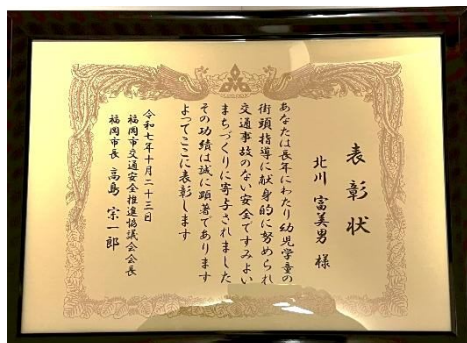 表彰状
北川 富美男 様
あなたは長年にわたり幼児学童の
街頭指導に献身的に努められ
交通事故のない安全ですみよい
まちづくりに寄与されました
その功績は誠に顕著であります
よってここに表彰します
令和七年十月二十三日
福岡市交通安全推進協議会会長
福岡市長 高島 宗一郎